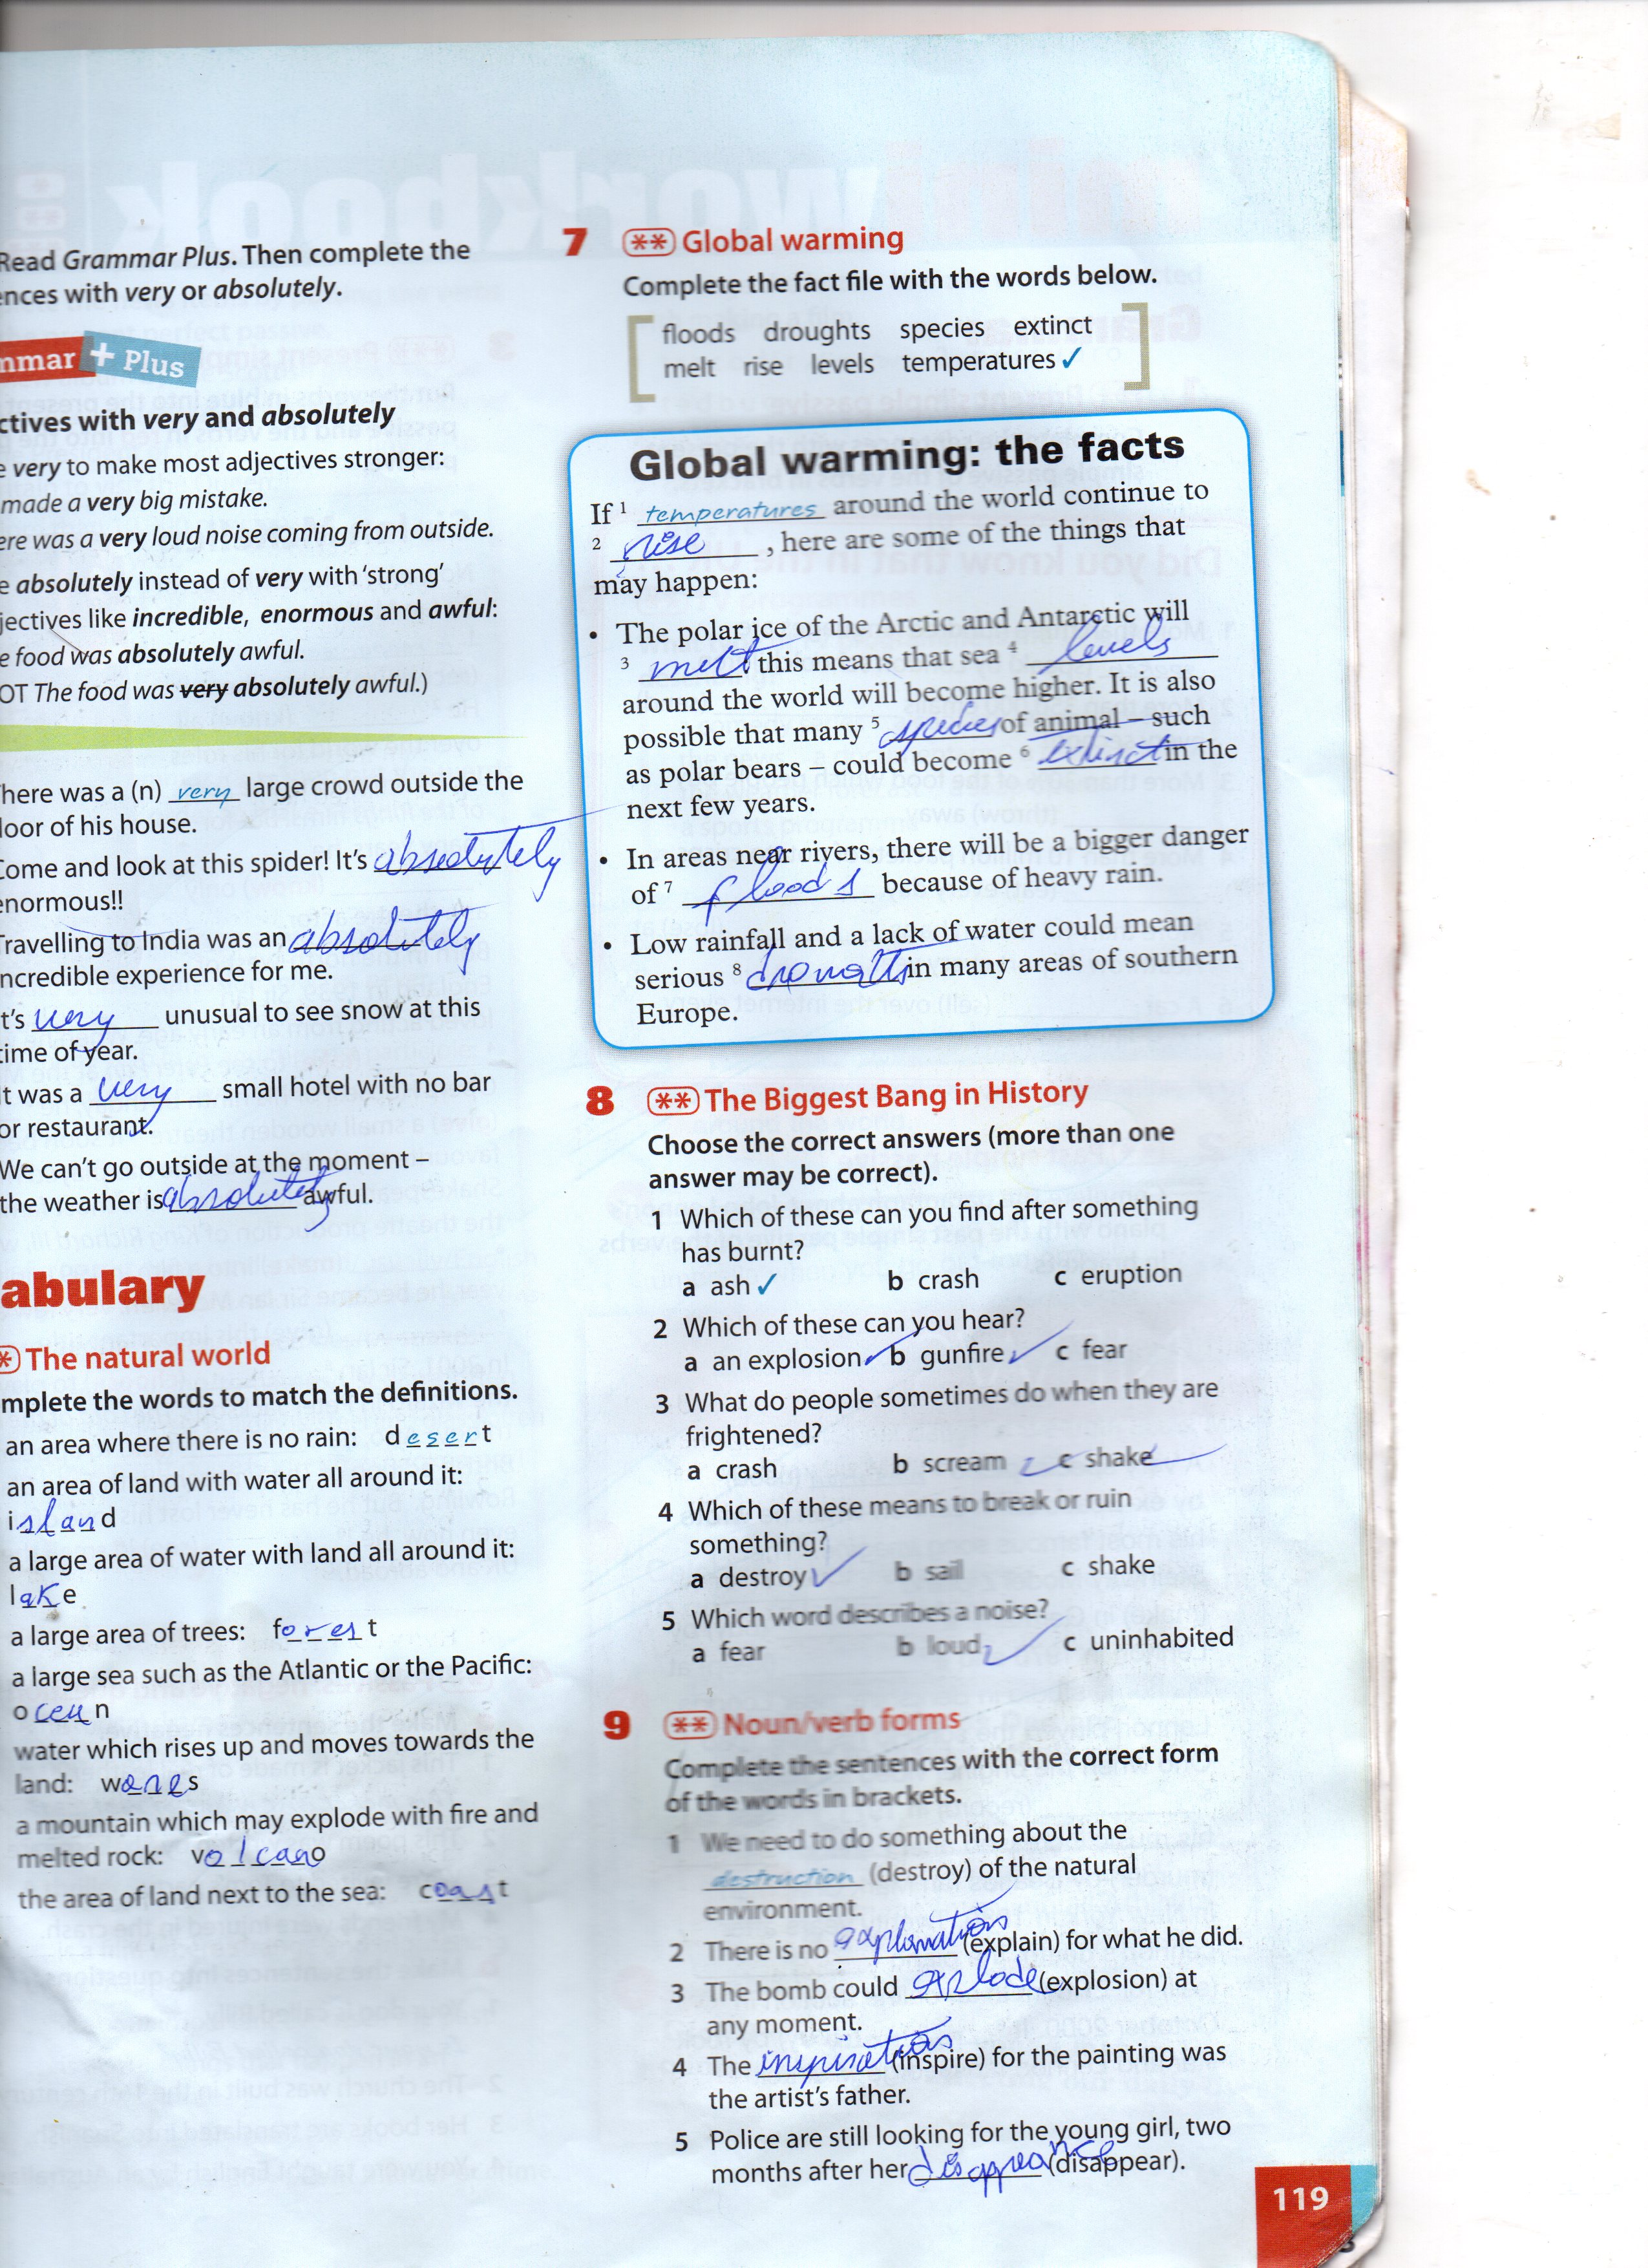 Read Grammar Plus. Then complete the
ences with very or absolutely.
mmar + Plus
ctives with very and absolutely
e very to make most adjectives stronger:
made a very big mistake.
ere was a very loud noise coming from outside.
e absolutely instead of very with 'strong'
jectives like incredible, enormous and awful:
e food was absolutely awful.
OT The food was very absolutely awful.)
here was a (n) very large crowd outside the
loor of his house.
Come and look at this spider! It's absolutely
enormous!!
Travelling to India was an absolutely
ncredible experience for me.
t's very unusual to see snow at this
time of year.
t was a very small hotel with no bar
or restaurant.
We can't go outside at the moment –
the weather is absolutely awful.
abulary
*) The natural world
mplete the words to match the definitions.
an area where there is no rain: desert
an area of land with water all around it:
island
a large area of water with land all around it:
lake
a large area of trees: forest
a large sea such as the Atlantic or the Pacific:
ocean
water which rises up and moves towards the
land: waves
a mountain which may explode with fire and
melted rock: volcano
the area of land next to the sea: coast
7 (**) Global warming
Complete the fact file with the words below.
floods droughts species extinct
melt rise levels temperatures ✓
Global warming: the facts
If 1 temperatures around the world continue to
2 rise, here are some of the things that
may happen:
• The polar ice of the Arctic and Antarctic will
3 melt this means that sea 4 levels
around the world will become higher. It is also
possible that many 5 species of animal – such
as polar bears – could become 6 extinct in the
next few years.
• In areas near rivers, there will be a bigger danger
of 7 floods because of heavy rain.
• Low rainfall and a lack of water could mean
serious 8 in many areas of southern
Europe.
8 (**) The Biggest Bang in History
Choose the correct answers (more than one
answer may be correct).
1 Which of these can you find after something
has burnt?
a ash ✓ b crash c eruption
2 Which of these can you hear?
a an explosion ✓ b gunfire ✓ c fear
3 What do people sometimes do when they are
frightened?
a crash b scream ✓ c shake
4 Which of these means to break or ruin
something?
a destroy ✓ b sail c shake
5 Which word describes a noise?
a fear b loud ✓ c uninhabited
9 (**) Noun/verb forms
Complete the sentences with the correct form
of the words in brackets.
1 We need to do something about the
destruction (destroy) of the natural
environment.
2 There is no explanation (explain) for what he did.
3 The bomb could explode (explosion) at
any moment.
4 The inspiration (inspire) for the painting was
the artist's father.
5 Police are still looking for the young girl, two
months after her disappearance (disappear).
119